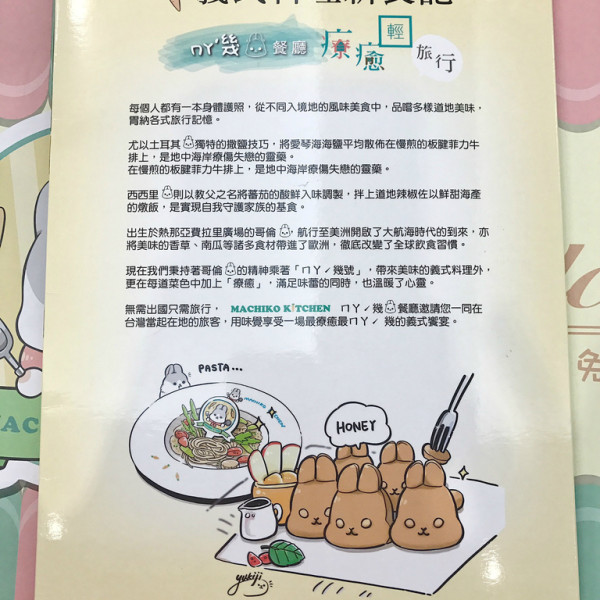 ㄇㄚˊ幾 餐廳 療癒 輕 旅行
每個人都有一本身體護照，從不同入境地的風味美食中，品嚐多樣道地美味，
胃納各式旅行記憶。
尤以土耳其 獨特的撒鹽技巧，將愛琴海海鹽平均散佈在慢煎的板腱菲力牛
排上，是地中海岸療傷失戀的靈藥。
在慢煎的板腱菲力牛排上，是地中海岸療傷失戀的靈藥。
西西里 則以教父之名將蕃茄的酸鮮入味調製，拌上道地辣椒佐以鮮甜海產
的燉飯，是實現自我守護家族的基食。
出生於熱那亞費拉里廣場的哥倫 ，航行至美洲開啟了大航海時代的到來，亦
將美味的香草、南瓜等諸多食材帶進了歐洲，徹底改變了全球飲食習慣。
現在我們秉持著哥倫 的精神乘著「ㄇㄚˊ幾號」，帶來美味的義式料理外，
更在每道菜色中加上「療癒」，滿足味蕾的同時，也溫暖了心靈。
無需出國只需旅行， MACHIKO KITCHEN ㄇㄚˊ幾 餐廳邀請您一同在
台灣當起在地的旅客，用味覺享受一場最療癒最ㄇㄚˊ幾的義式饗宴。
PASTA...
MACHIKO
HONEY
yukiji
免